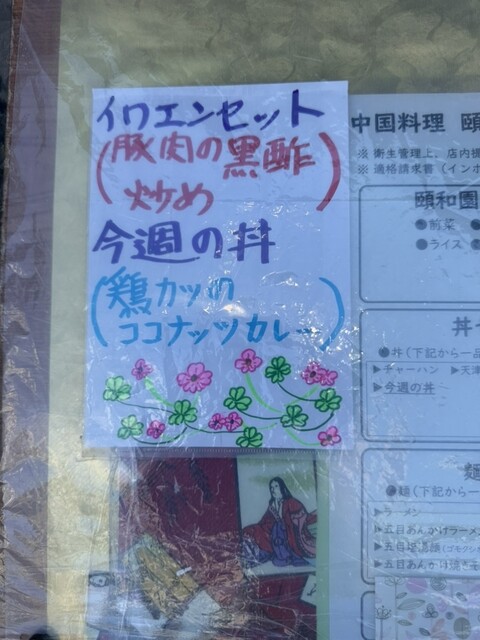 イワエンセット
(豚肉の黒酢
炒め)
今週の丼
(鶏カツの
ココナッツカレー)
中国料理 頤
※ 衛生管理上、店内
※ 適格請求書(インボ
頤和園
●前菜
●ライス
丼セ
●丼(下記から一品
▶チャーハン ▶天津
▶今週の丼
麺
●麺(下記から一
▶ラーメン
▶五目あんかけラーメ
▶五目
▶五目あんかけ焼き